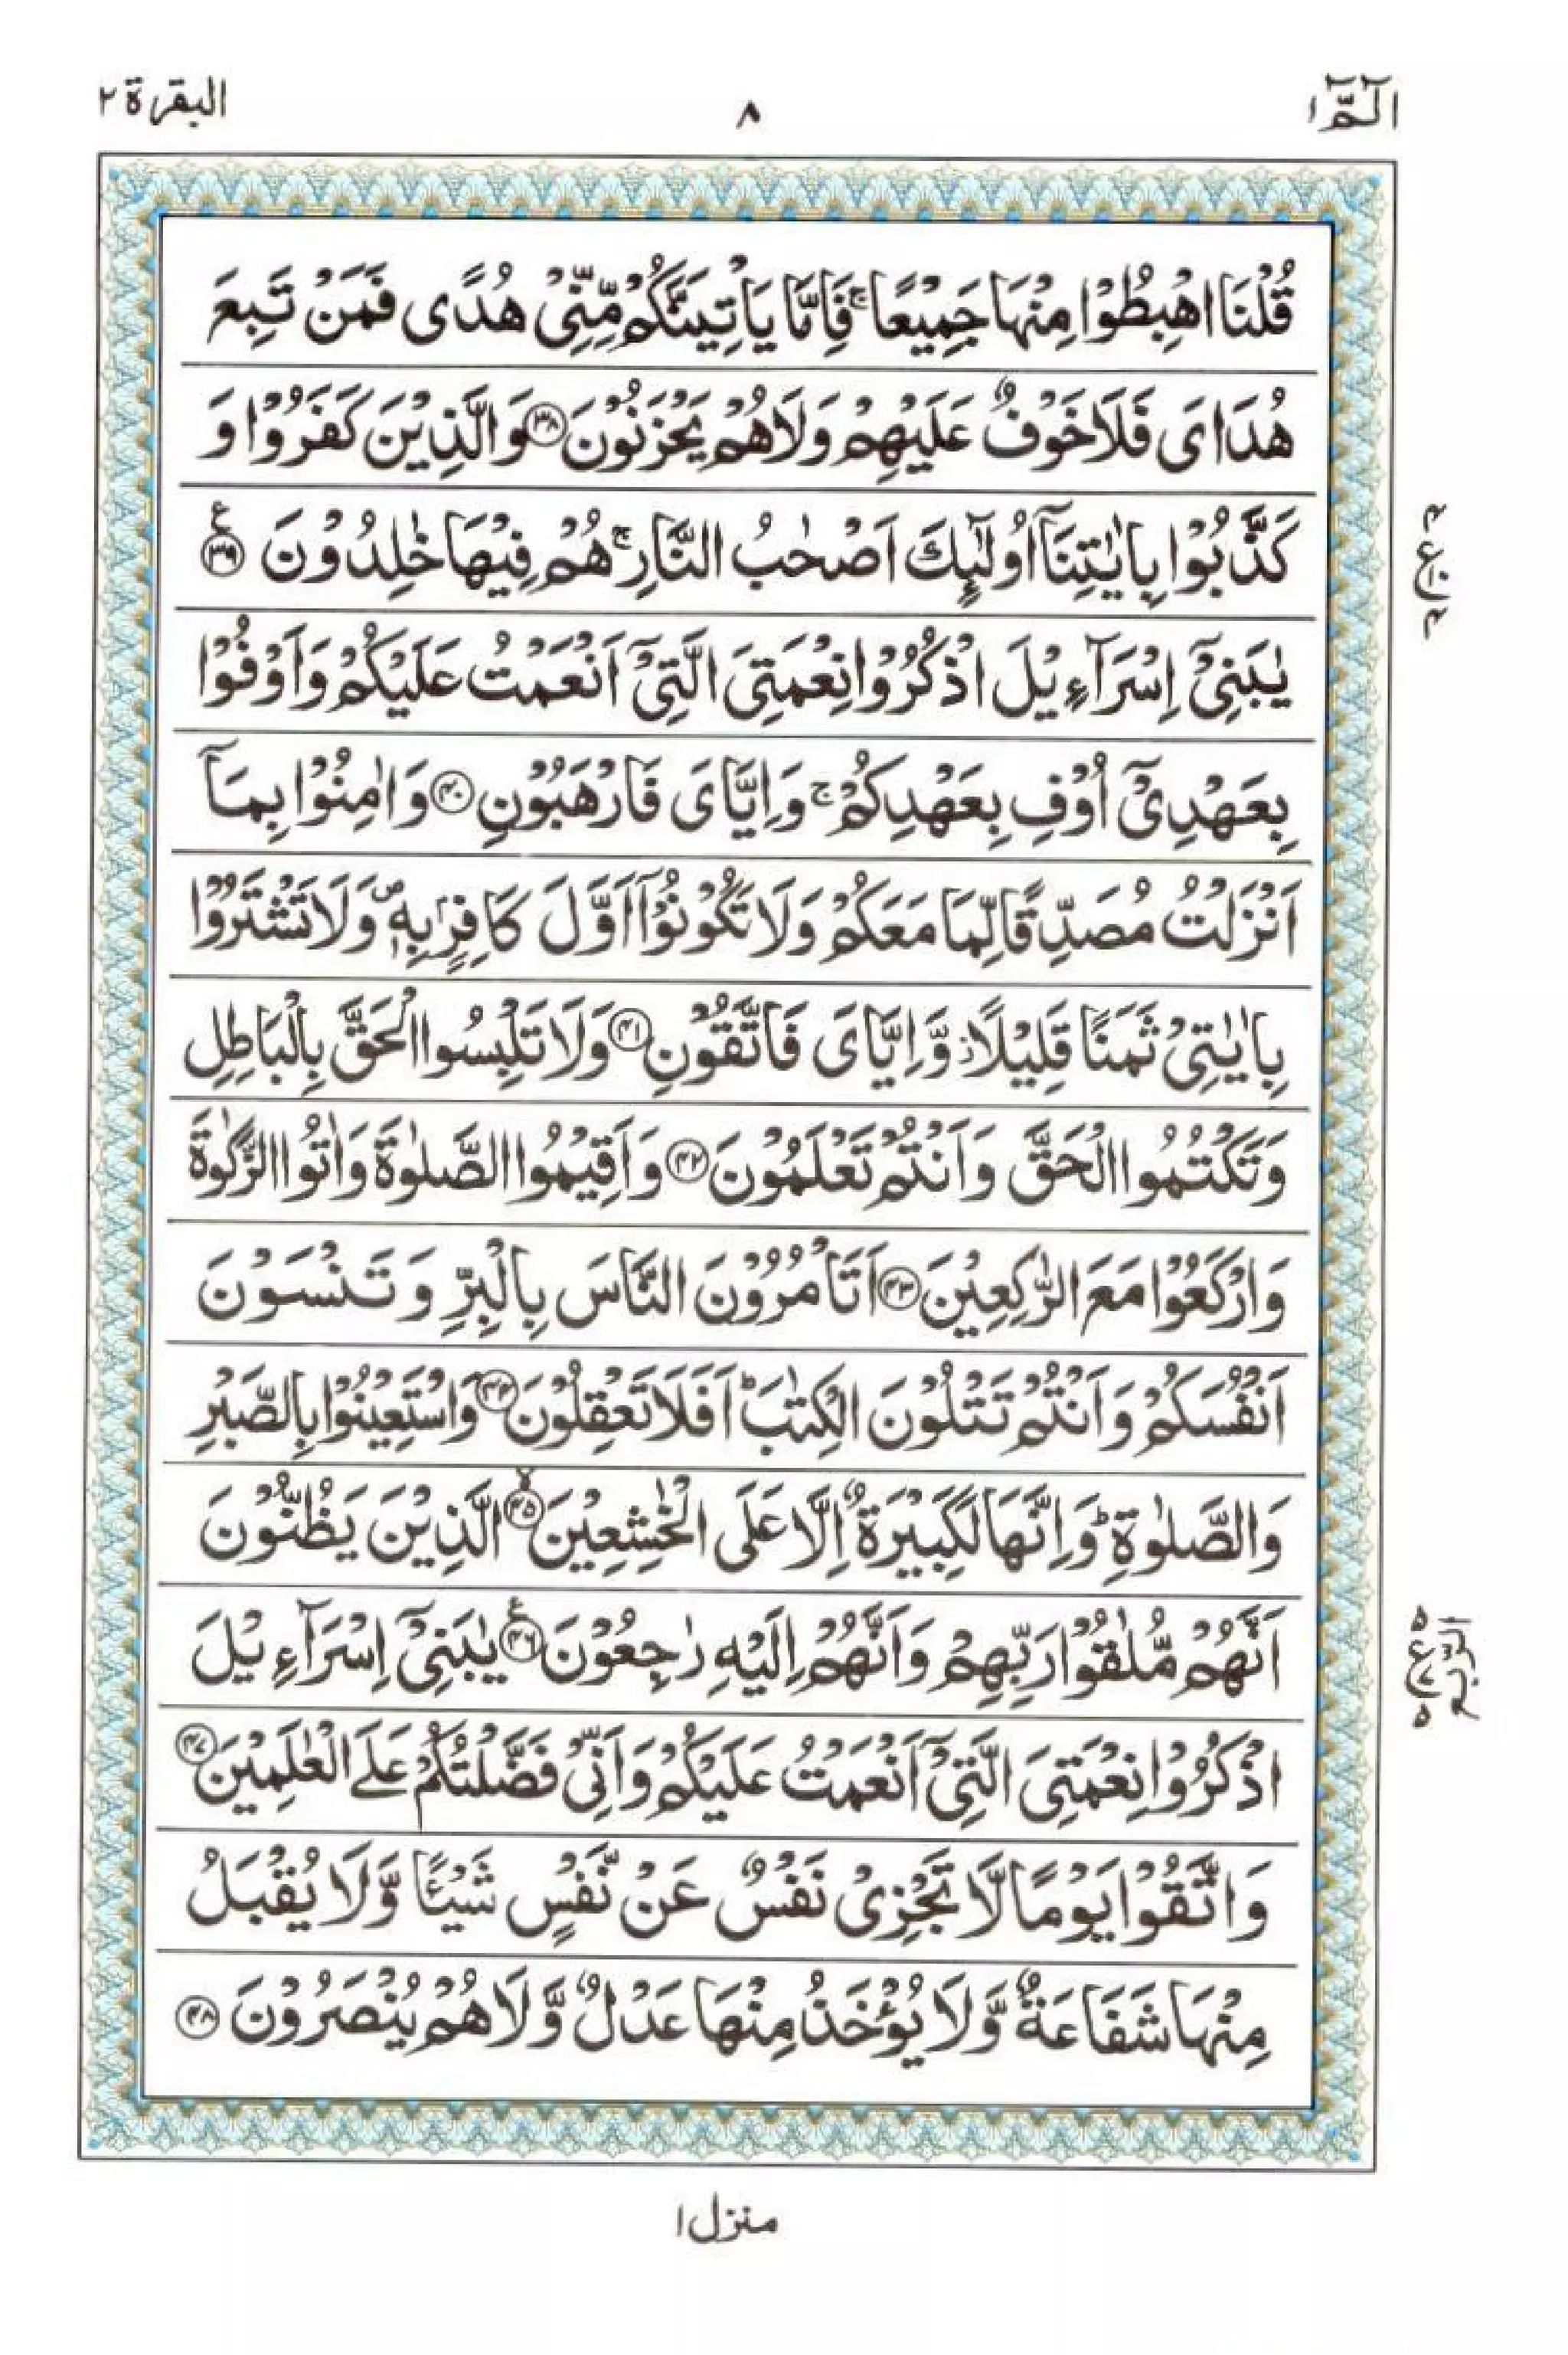 الٓمّٓ ١
٨
البقرة ٢
قُلْنَا اهْبِطُوْا مِنْهَا جَمِيْعًا ۚ فَاِمَّا يَاْتِيَنَّكُمْ مِّنِّىْ هُدًى فَمَنْ تَبِعَ
هُدَاىَ فَلَا خَوْفٌ عَلَيْهِمْ وَلَا هُمْ يَحْزَنُوْنَ ﴿٣٨﴾ وَالَّذِيْنَ كَفَرُوْا وَ
كَذَّبُوْا بِاٰيٰتِنَآ اُولٰٓئِكَ اَصْحٰبُ النَّارِ ۚ هُمْ فِيْهَا خٰلِدُوْنَ ﴿٣٩﴾ ع
يٰبَنِىْٓ اِسْرَآءِيْلَ اذْكُرُوْا نِعْمَتِىَ الَّتِىْٓ اَنْعَمْتُ عَلَيْكُمْ وَاَوْفُوْا
بِعَهْدِىْٓ اُوْفِ بِعَهْدِكُمْ ۚ وَاِيَّاىَ فَارْهَبُوْنِ ﴿٤٠﴾ وَاٰمِنُوْا بِمَآ
اَنْزَلْتُ مُصَدِّقًا لِّمَا مَعَكُمْ وَلَا تَكُوْنُوْٓا اَوَّلَ كَافِرٍۭ بِهٖ ۖ وَلَا تَشْتَرُوْا
بِاٰيٰتِىْ ثَمَنًا قَلِيْلًا ؗ وَّاِيَّاىَ فَاتَّقُوْنِ ﴿٤١﴾ وَلَا تَلْبِسُوا الْحَقَّ بِالْبَاطِلِ
وَتَكْتُمُوا الْحَقَّ وَاَنْتُمْ تَعْلَمُوْنَ ﴿٤٢﴾ وَاَقِيْمُوا الصَّلٰوةَ وَاٰتُوا الزَّكٰوةَ
وَارْكَعُوْا مَعَ الرّٰكِعِيْنَ ﴿٤٣﴾ اَتَاْمُرُوْنَ النَّاسَ بِالْبِرِّ وَتَنْسَوْنَ
اَنْفُسَكُمْ وَاَنْتُمْ تَتْلُوْنَ الْكِتٰبَ ؕ اَفَلَا تَعْقِلُوْنَ ﴿٤٤﴾ وَاسْتَعِيْنُوْا بِالصَّبْرِ
وَالصَّلٰوةِ ؕ وَاِنَّهَا لَكَبِيْرَةٌ اِلَّا عَلَى الْخٰشِعِيْنَ ﴿٤٥﴾ ۙ الَّذِيْنَ يَظُنُّوْنَ
اَنَّهُمْ مُّلٰقُوْا رَبِّهِمْ وَاَنَّهُمْ اِلَيْهِ رٰجِعُوْنَ ﴿٤٦﴾ ع يٰبَنِىْٓ اِسْرَآءِيْلَ
اذْكُرُوْا نِعْمَتِىَ الَّتِىْٓ اَنْعَمْتُ عَلَيْكُمْ وَاَنِّىْ فَضَّلْتُكُمْ عَلَى الْعٰلَمِيْنَ ﴿٤٧﴾
وَاتَّقُوْا يَوْمًا لَّا تَجْزِىْ نَفْسٌ عَنْ نَّفْسٍ شَيْـًٔا وَّلَا يُقْبَلُ
مِنْهَا شَفَاعَةٌ وَّلَا يُؤْخَذُ مِنْهَا عَدْلٌ وَّلَا هُمْ يُنْصَرُوْنَ ﴿٤٨﴾
الربع
منزل ١